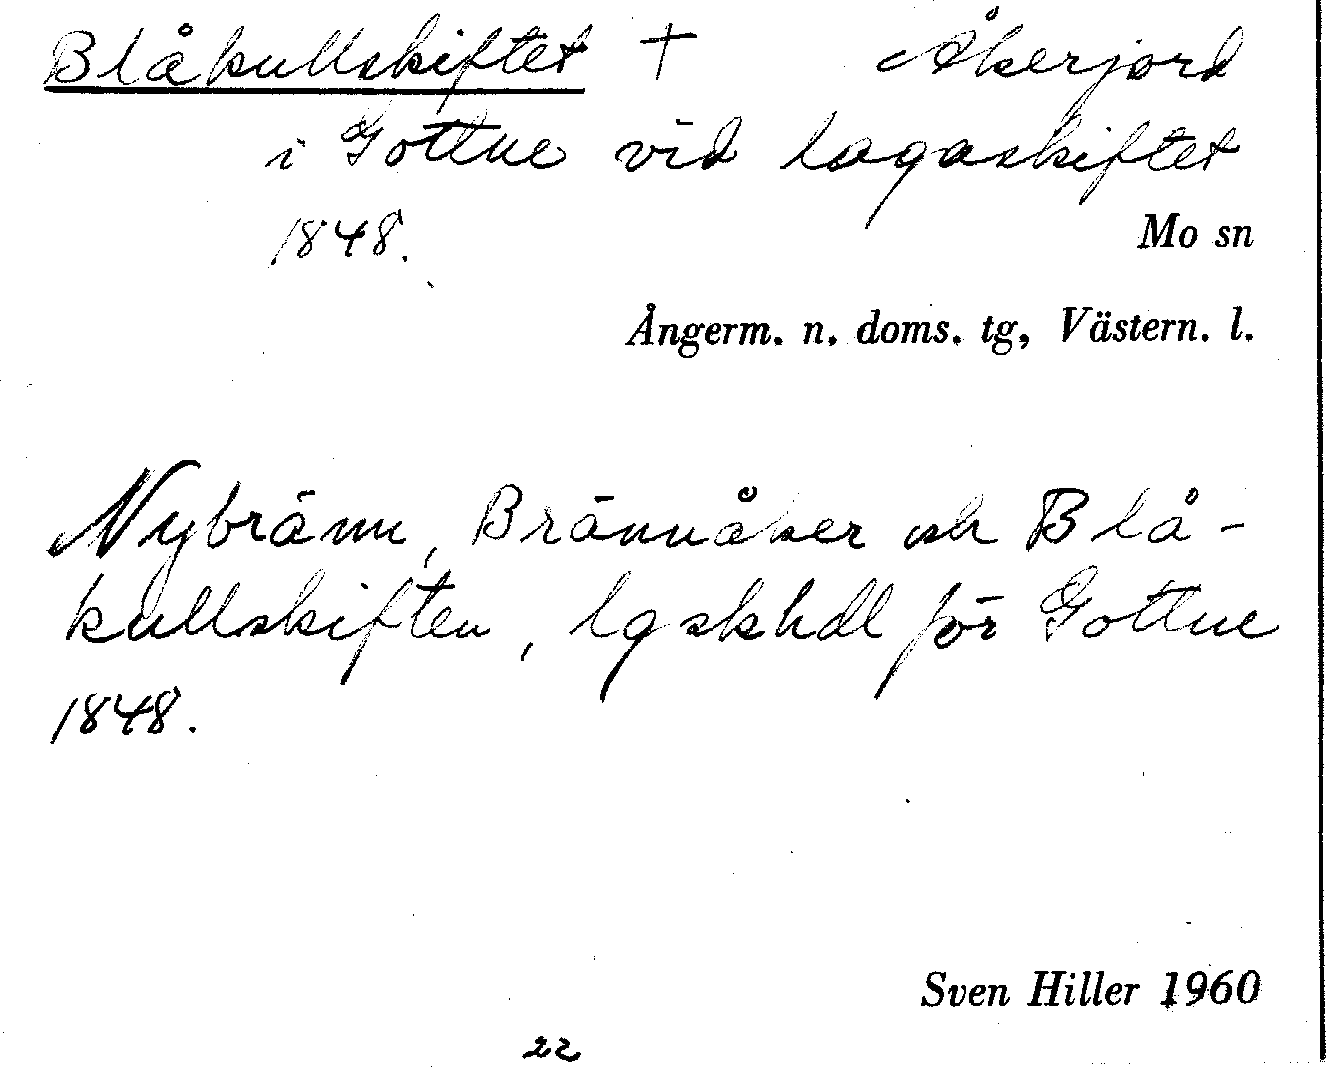 Blåkullskiftet + Åkerjord
i Gottne vid lagaskiftet
1848.
Mo sn
Ångerm. n. doms. tg, Västern. l.
Nybränn, Brännåker och Blå-
kullskiften, lgskhdl för Gottne
1848.
Sven Hiller 1960
22